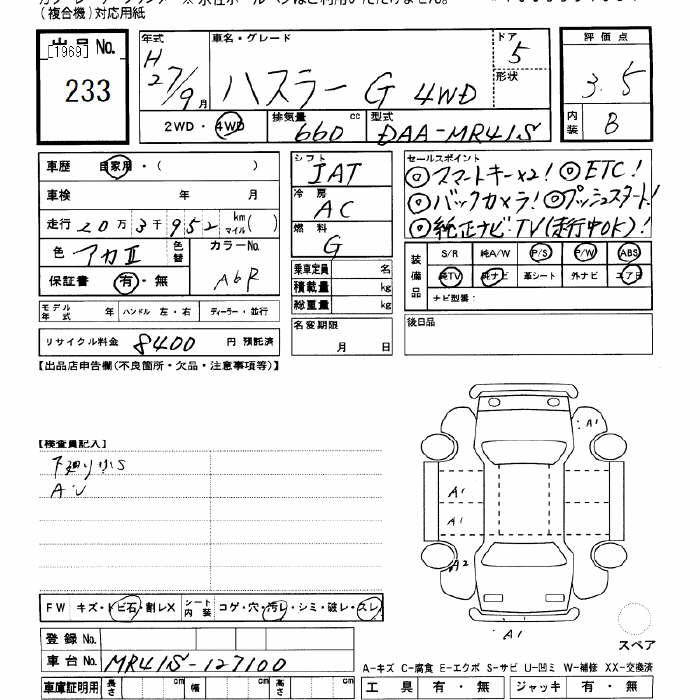 (複合機)対応用紙
出品 No.
[1969]
233
年式 車名・グレード ドア 評価点
H 27/9月 ハスラー G 4WD 5 3.5
形状
2WD・4WD 排気量 660 cc 型式 DAA-MR41S 内装 B
車歴 自家用・( )
車検 年 月
走行 20万3千952 km マイル( )
色 アカⅡ 色替 カラーNo.
保証書 有・無 A6R
モデル年式 年 ハンドル 左・右 ディーラー・並行
リサイクル料金 8400 円 預託済
シフト
IAT
冷房
AC
燃料
G
乗車定員 名
積載量 kg
総重量 kg
名変期限
月 日
セールスポイント
◎スマートキー×2! ◎ETC!
◎バックカメラ! ◎プッシュスタート!
◎純正ナビ・TV(走行中OK)!
装備品 S/R 純A/W P/S P/W ABS
純TV 純ナビ 革シート 外ナビ エアB
ナビ型番:
後日品
【出品店申告欄(不良箇所・欠品・注意事項等)】
【検査員記入】
下廻り小S
AU
A1
A1
A1
A2
A1
スペア
FW キズ・トビ石・割レX シート内装 コゲ・穴・汚レ・シミ・破レ・スレ
登録 No.
車台 No. MR41S-127100
車庫証明用 長さ cm 幅 cm 高さ cm
A-キズ C-腐食 E-エクボ S-サビ U-凹ミ W-補修 XX-交換済
工具 有・無 ジャッキ 有・無